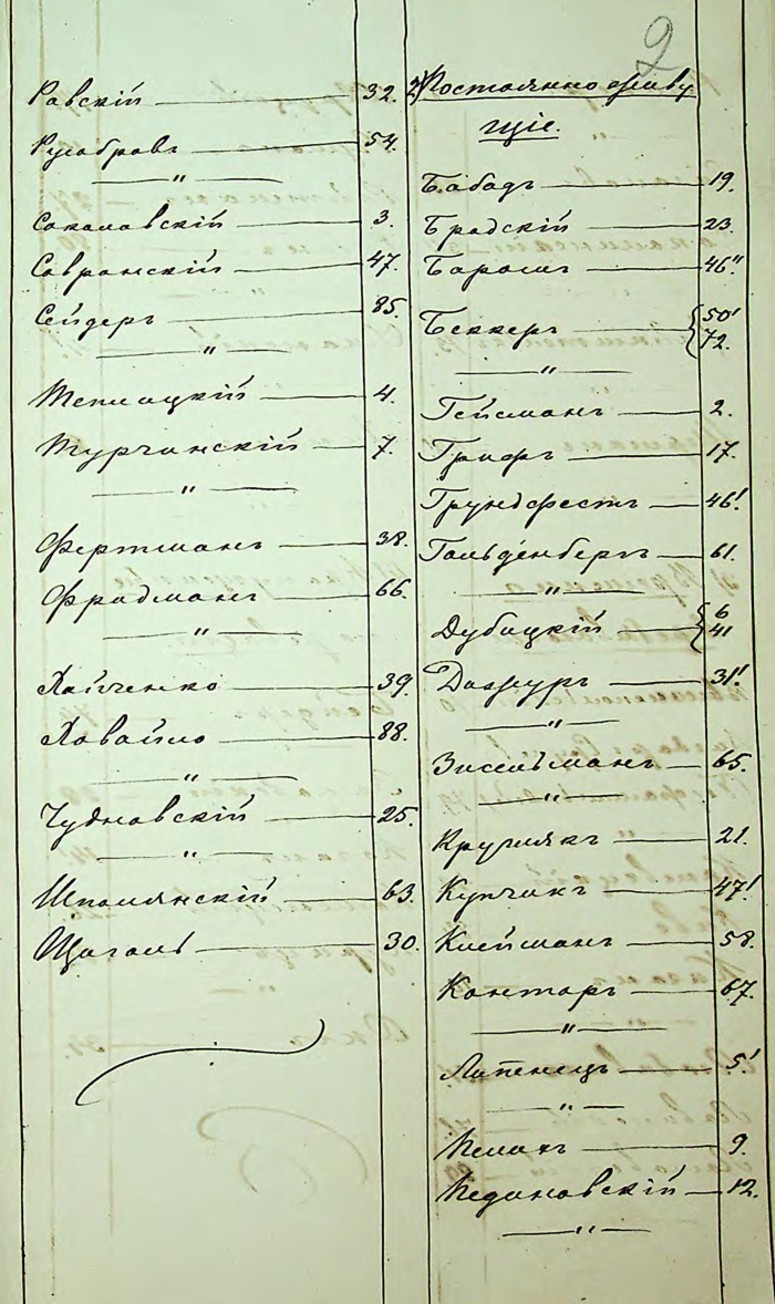 2
Равскій — 32.
Русобровъ — 54.
— " —
Соколовскій — 3.
Савранскій — 47.
Сейдеръ — 85.
— " —
Теплицкій — 4.
Турчинскій — 7.
— " —
Фертманъ — 38.
Фридманъ — 66.
— " —
Хайченко — 39.
Ховайло — 88.
— " —
Чудновскій — 25.
— " —
Шполянскій — 63.
Щиголь — 30.
2) Постоянно живу
щіе.
Бабадъ — 19.
Бродскій — 23.
Барошъ — 46"
Беккеръ — { 50!
72.
— " —
Гейсманъ — 2.
Грифъ — 17.
Грундфестъ — 46!
Гольденбергъ — 61.
— " —
Дубицкій — { 6
41
Дашуръ — 31!
— " —
Зисельманъ — 65.
— " —
Кручлякъ — 21.
Купчикъ — 47!
Клейманъ — 58.
Канторъ — 67.
— " —
Липенецъ — 5!
— " —
— 9.
— 12.
— " —